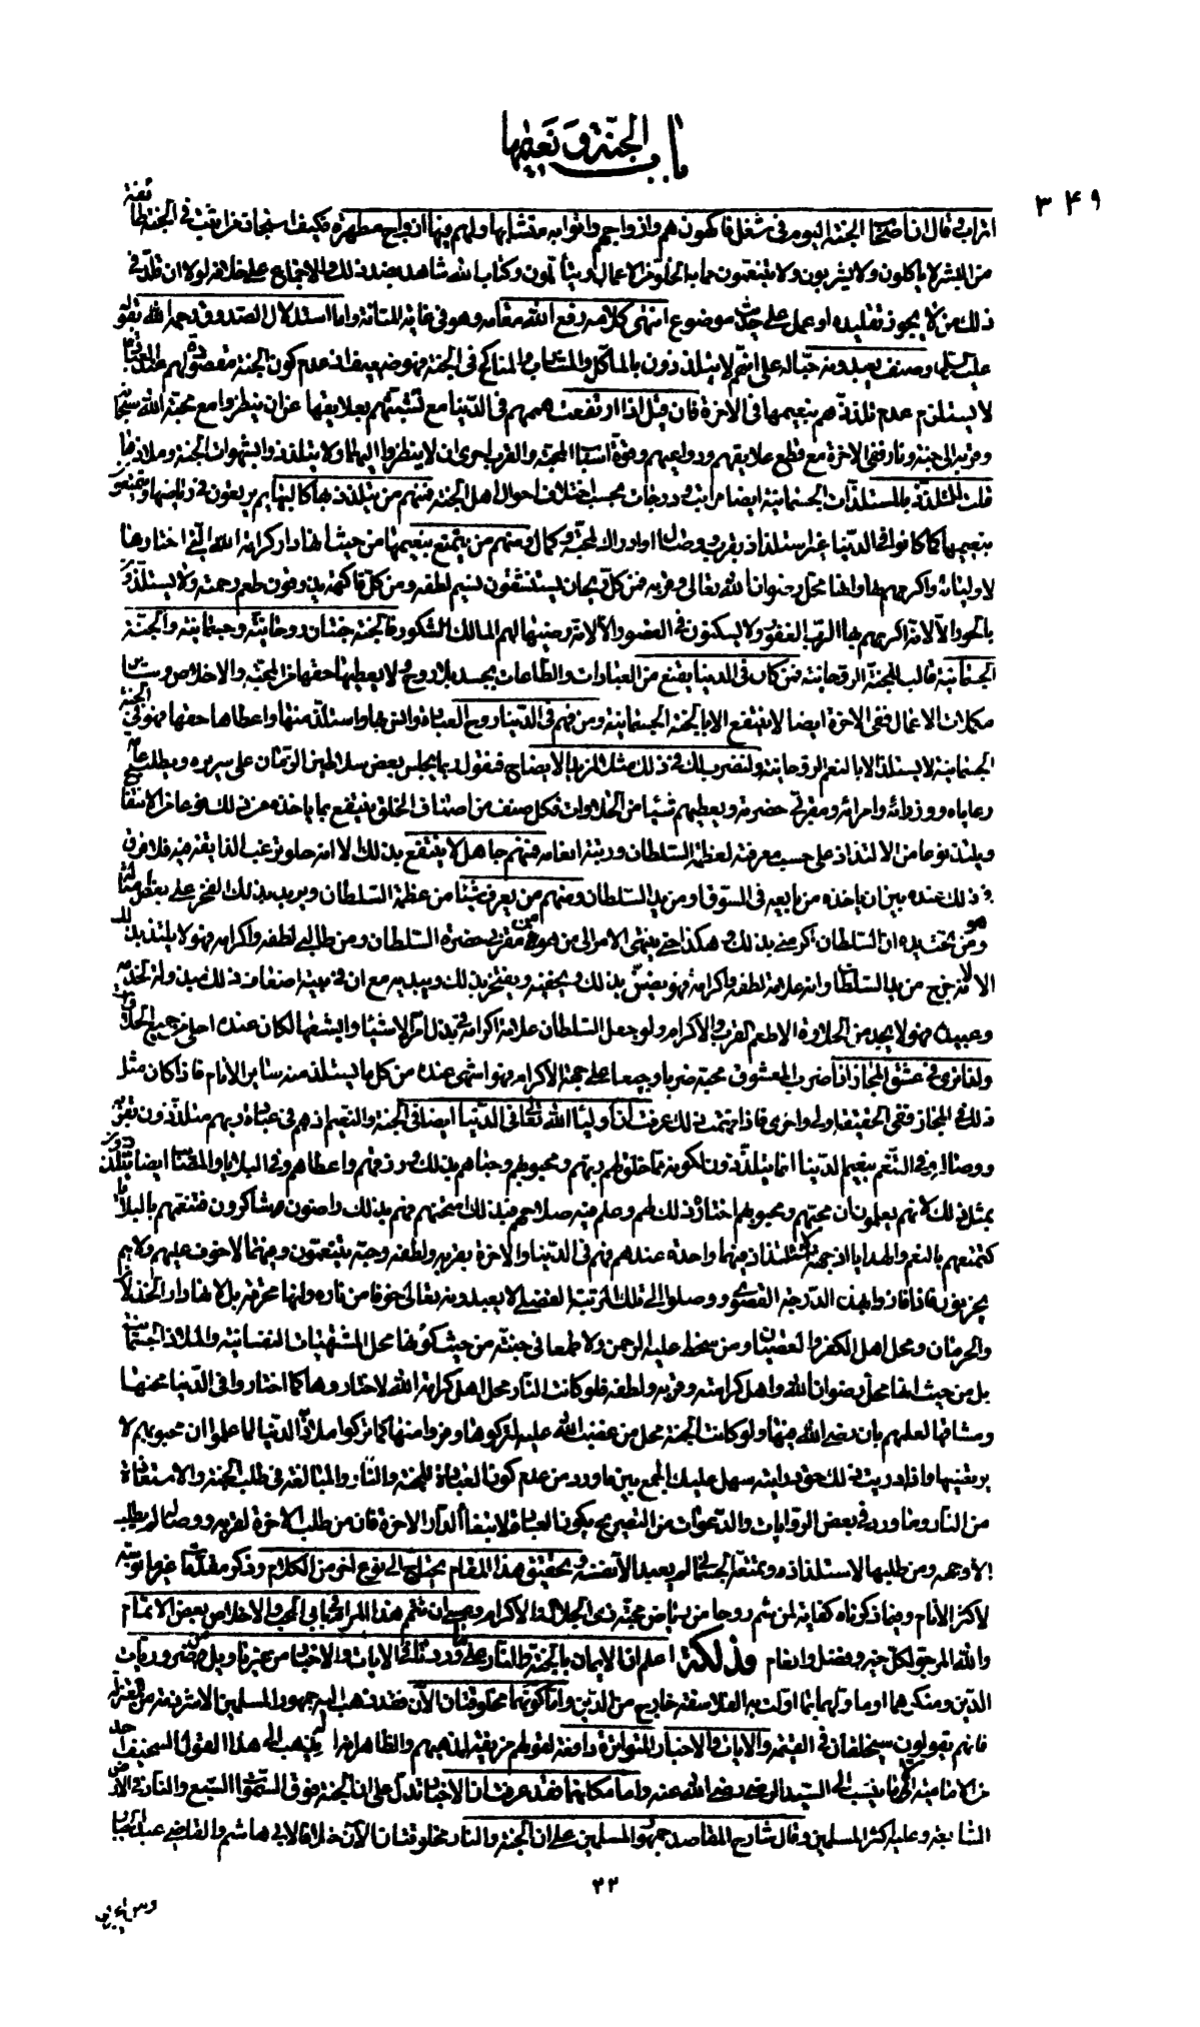 باب الجنة ونعيمها
٣٤٩
اتراب وقال ان اصحاب الجنة اليوم في شغل فاكهون هم وازواجهم واتوا به متشابها ولهم فيها ازواج مطهرة فكيف استجاز من اثبت في الجنة طائفة
من البشر لا ياكلون ولا يشربون ويتنعمون مما به الخلق من الاعمال ويتألمون وكتاب الله شاهد بضد ذلك والاجماع على خلافه لولا ان قلد في
ذلك من لا يجوز تقليده او عمل على حديث موضوع انتهى كلامه رفع الله مقامه وهو في غاية المتانة واما استدلال الصدوق رحمه الله بقوله
عليه السلام وصنف يعبدونه حبا له على انهم لا يتلذذون بالمآكل والمشارب والمناكح في الجنة فهو ضعيف اذ عدم كون الجنة مقصودة لهم عند العبادة
لا يستلزم عدم تلذذهم بنعيمها في الاخرة فان قيل اذا ارتفعت هممهم في الدنيا مع تشبثهم بعلايقها عن ان ينظروا مع محبة الله سبحانه
وقربه الى جنة ونار ففي الاخرة مع قطع علايقهم ودواعيهم وقوة اسباب المحبة والقرب احرى ان لا ينظروا اليهما ولا يتلذذوا بشهوات الجنة وملاذها
قلت التلذذ بالمستلذات الجسمانية ايضا مراتب ودرجات بحسب اختلاف احوال اهل الجنة فمنهم من يتلذذ بها كالبهايم يرتعون في رياضها ويتمتعون
بنعيمها كما كانوا في الدنيا غير استلذاذ بقرب ووصال او ادراك لمحبة وكمال ومنهم من يتمتع بنعيمها من حيث انها دار كرامة الله التي اختارها
لاوليائه واكرمهم بها وانها محل رضوان الله تعالى وقربه فمن كل ريحان يستنشقون نسيم لطفه ومن كل فاكهة يذوقون طعم رحمته ولا يستلذون
بالحور الا لانه اكرمهم بها الرب الغفور ولا يسكنون في القصور الا لانه رضيها لهم المالك الشكور فالجنة جنتان روحانية وجسمانية والجنة
الجسمانية قالب للجنة الروحانية فمن كان في الدنيا يقنع من العبادات والطاعات بجسد بلا روح ولا يعطيها حقها من المحبة والاخلاص وسائر
مكملات الاعمال ففي الاخرة ايضا لا ينتفع الا بالجنة الجسمانية ومن فهم في الدنيا روح العبادة وانس بها واستلذ منها واعطاها حقها فهو في الجنة
الجسمانية لا يستلذ الا بالنعم الروحانية ولنضرب لك في ذلك مثلا لمزيد الايضاح فنقول ربما يجلس بعض سلاطين الزمان على سريره ويطلب عامة
رعاياه ووزرائه وامرائه ومقربي حضرته ويعطيهم شيئا من الحلاوات فكل صنف من اصناف الخلق ينتفع بما ياخذه من ذلك نوعا من الانتفاع
ويلتذ نوعا من الالتذاذ على حسب معرفته لعظمة السلطان ورتبة انعامه فمنهم جاهل لا ينتفع بذلك الا انه حلو ترغب الذائقة فيه فلا فرق
في ذلك عنده بين ان ياخذه من بايعه في السوق او من يد السلطان ومنهم من يعرف شيئا من عظمة السلطان ويريد بذلك الفخر على بعض امثاله
ومن تحت يده ان السلطان اكرمني بذلك وهكذا حتى ينتهي الامر الى من هو من مقربي حضرة السلطان ومن طالبي لطفه واكرامه فهو لا يلتذ بذلك
الا لانه خرج من يد السلطان وانه علامة لطفه واكرامه فهو يضن بذلك ويخفيه ويفتخر بذلك ويبديه مع ان في بيته اضعاف ذلك مبذولة لخدمه
وعبيده فهو لا يجد من الحلاوة الا طعم القرب والاكرام ولو جعل السلطان علامة اكرامه في بذل امر الاشياء وابشعها لكان عنده احلى من جميع الحلاوات
ولذا ترى في عشق المجاز اذا ضرب المعشوق محبه ضربا وجيعا على جهة الاكرام فهو اشهى عنده من كل ما يستلذ منه سائر الانام فاذا كان مثل
ذلك في المجاز ففي الحقيقة اولى واحرى فاذا فهمت ذلك عرفت ان اولياء الله تعالى في الدنيا ايضا في الجنة والنعيم اذ هم في عبادة ربهم متلذذون بقربه
ووصاله وفي التنعم بنعيم الدنيا انما يتلذذون لكونه مما خلق لهم ربهم ومحبوبهم وحباهم بذلك ورزقهم واعطاهم وفي البلايا والمصائب ايضا يتلذذون
بمثل ذلك لانهم يعلمون ان محبهم ومحبوبهم اختار ذلك لهم وعلم فيه صلاحهم فبذلك امتحنهم فهم بذلك راضون شاكرون فتنعمهم بالبلايا
كتنعمهم بالنعم والهدايا اذ جهة الاستلذاذ فيهما واحدة عندهم فهم في الدنيا والاخرة بقربه ولطفه وحبه يتنعمون وفيهما لا خوف عليهم ولا هم
يحزنون فاذا فازوا بهذه الدرجة القصوى ووصلوا الى تلك المرتبة الفضلى لا يعبدونه تعالى خوفا من ناره وانها محرقة بل لانها دار الخذلان
والحرمان ومحل اهل الكفر والعصيان ومن سخط عليه الرحمن ولا طمعا في جنته من حيث كونها محل المشتهيات النفسانية والملاذ الجسمانية
بل من حيث انها محل رضوان الله واهل كرامته وقربه ولطفه فلو كانت النار محل اهل كرامة الله لاختاروها كما اختاروا في الدنيا محنها
ومشاقها لعلمهم بان رضى الله فيها ولو كانت الجنة محل من غضب الله عليه لتركوها وفروا منها كما تركوا ملاذ الدنيا لما علموا ان محبوبهم لا
يرتضيها واذا دريت ذلك حق درايته سهل عليك الجمع بين ما ورد من عدم كون العبادة للجنة والنار والمبالغة في طلب الجنة والاستعاذة
من النار وما ورد في بعض الروايات والدعوات من التصريح بكون العبادة لابتغاء الدار الاخرة فان من طلب الاخرة لقربه ووصاله لم يطلب
الا وجهه ومن طلبها لاستلذاذه وتمتعه الجسماني لم يعبد الا نفسه وتحقيق هذا المقام يحتاج الى نوع اخر من الكلام وذكر مقدمات غير مانوسة
لاكثر الانام وفيما ذكرناه كفاية لمن شم روحا من رياض محبة ذي الجلال والاكرام وعسى ان نتمم هذا المرام في باب الحب والاخلاص بعض الاتمام
والله المرجو لكل خير وفضل وانعام فذلكة اعلم ان الايمان بالجنة والنار على ما وردتا في الايات والاخبار من غير تاويل من ضروريات
الدين ومنكرهما او مأولهما بما اولت به الفلاسفة خارج من الدين واما كونهما مخلوقتان الآن فقد ذهب اليه جمهور المسلمين الا شرذمة من المعتزلة
فانهم يقولون سيخلقان في القيمة والايات والاخبار المتواترة دافعة لقولهم مزيفة لمذهبهم والظاهر انه لم يذهب الى هذا القول السخيف احد
من الامامية الا ما ينسب الى السيد الرضي رضي الله عنه واما مكانهما فقد عرفت ان الاخبار تدل على ان الجنة فوق السموات السبع والنار في الارض
السابعة وعليه اكثر المسلمين وقال شارح المقاصد جمهور المسلمين على ان الجنة والنار مخلوقتان الآن خلافا لابي هاشم والقاضي عبد الجبار
٢٢